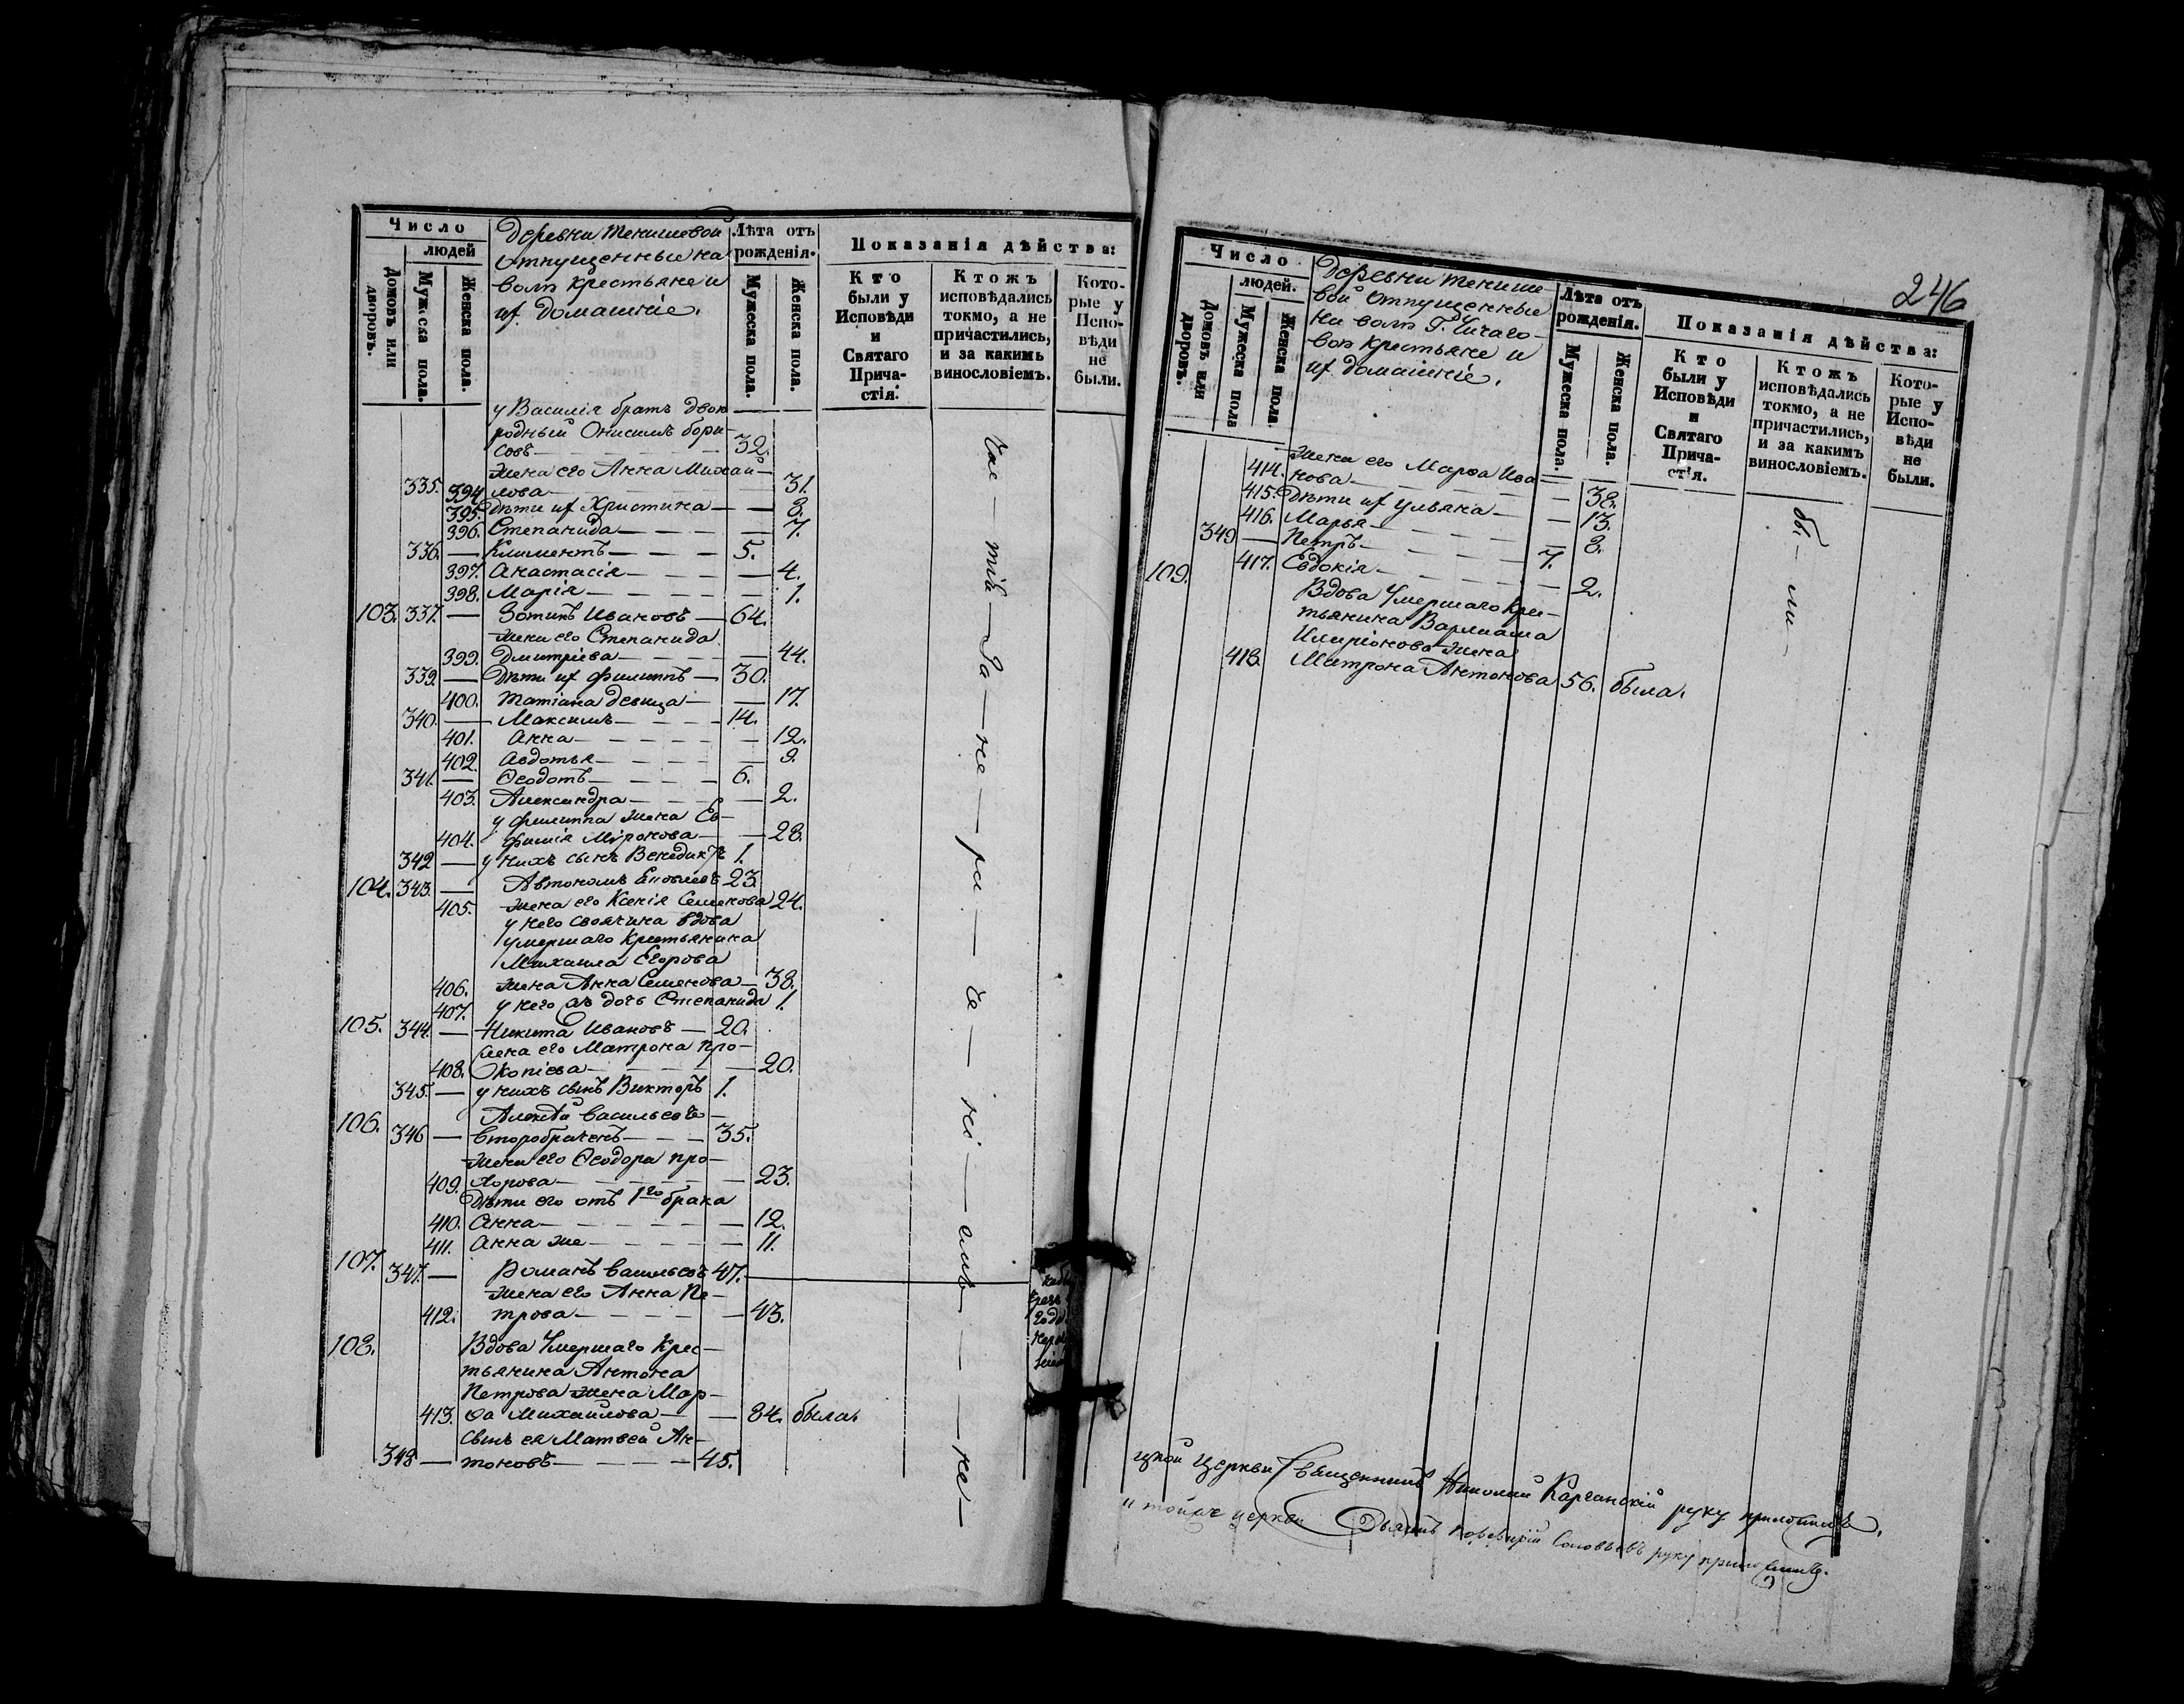 Число
людей
Домовъ или дворовъ.
Мужска пола.
Женска пола.
Деревни Тенишевой
отпущенные на
волю крестьяне и
их домашніе.
Лѣта отъ
рожденія.
Мужеска пола.
Женска пола.
Показанія дѣйства:
Кто
были у
Исповѣди
и
Святаго
Прича-
стія.
Ктожъ
исповѣдались
токмо, а не
причастились,
и за какимъ
винословіемъ.
Кото-
рые у
Испо-
вѣди
не
были.
у Василія братъ двою
родный Онисимъ бори-
совъ — 32.
жена его Анна Михаи-
335. 394. лова — 31.
395. Дѣти их Христина — 8.
396. Степанида — 7.
336. — Климентъ — 5.
397. Анастасія — 4.
398. Марія — 1.
103. 337. — Зотикъ Ивановъ — 64.
жена его Степанида
399. Дмитріева — 44.
339. — Дѣти их Филиппъ — 30.
400. Татіана девица — 17.
340. — Максимъ — 14.
401. Анна — 12.
402. Авдотья — 9.
341. — Ѳеодотъ — 6.
403. Александра — 2.
у Филиппа жена Ев-
404. фимія Миронова — 28.
342 — у нихъ сынъ Венедиктъ 1.
104. 343. — Автономъ 23.
405. жена его Ксенія Семенова 24.
у него своячина вдова
умершаго Крестьянина
Михаила Егорова
406. жена Анна Семенова — 38.
407. у него дочь Степанида 1.
105. 344. — Никита Ивановъ — 20.
жена его Матрона Про-
408. копіева — 20.
345. — у нихъ сынъ Викторъ 1.
106. Алексѣй Васильевъ —
346 — второбраченъ — 35.
жена его Ѳеодора про-
409. хорова — 23.
Дѣти его отъ 1го брака
410. Анна — 12.
411. Анна же — 11.
107. 347. — Романъ Васильевъ 47.
жена его Анна Пе-
412. трова — 43.
108. Вдова Умершаго Крес-
тьянина Антона
Петрова жена Мар-
413. ѳа Михайлова — 84. была.
сынъ ея Матвей Ан-
348 — тоновъ — 45.
час — тію — За — не — ра — че — ні — емъ — не —
246
Число
людей.
Домовъ или дворовъ.
Мужеска пола
Женска пола.
Деревни Тенише
вой отпущенные
на волю Г. Чичаго-
вой Крестьяне и
их домашніе.
Лѣта отъ
рожденія.
Мужеска пола.
Женска пола.
Показанія дѣйства:
Кто
были у
Исповѣди
и
Святаго
Прича-
стія.
Ктожъ
исповѣдались
токмо, а не
причастились,
и за какимъ
винословіемъ.
Кото-
рые у
Испо-
вѣди
не
были.
жена его Марѳа Ива
414. нова — 38.
415. Дѣти их Ульяна — 13.
416. Марья — 8.
349 — Петръ — 7.
417. Евдокія — 2.
109. Вдова Умершаго Крес-
тьянина Варлаама
Иларіонова жена
418. Матрона Антонова 56. была.
бы — ли —
цкой Церкви Священникъ Николай Карганскій руку приложилъ.
и тойже церкви Дьячекъ Соловьевъ руку приложилъ.